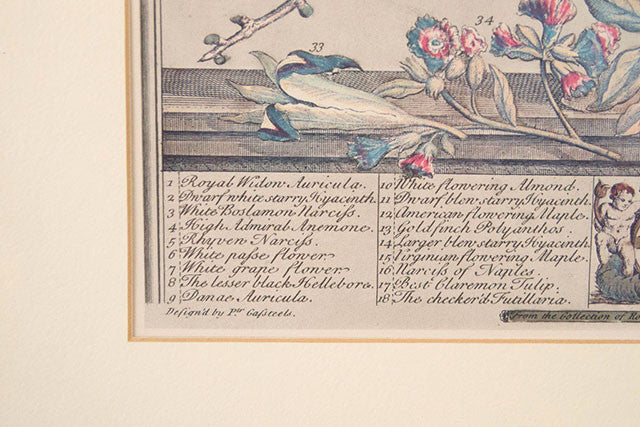 34
33
1 Royal Widow Auricula.
2 Dwarf white starry Hyacinth
3 White Boslamon Narciſs.
4 High Admiral Anemone.
5 Rhyven Narciſs.
6 White paſse flower
7 White grape flower
8 The lesser black Hellebore.
9 Danae Auricula.
10 White flowering Almond.
11 Dwarf blew starry Hyacinth
12 American flowering Maple.
13 Goldfinch Polyanthos.
14 Larger blew starry Hyacinth
15 Virginian flowering Maple.
16 Narciſs of Naples.
17 Best Claremon Tulip.
18 The checker'd Futillaria.
Design'd by Pᵗᵉʳ Caſsteels.
From the Collection of